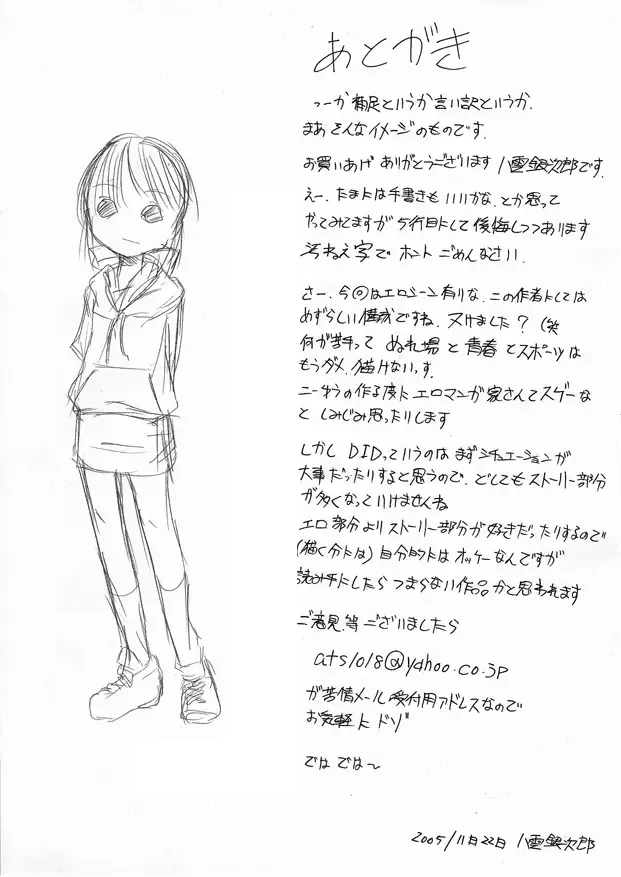 あとがき
つーか補足というか言い訳というか、
まあそんなイメージのものです。
お買いあげありがとうございます八雲銀次郎です。
えー、たまには手書きもいいかな、とか思って
やってみてますが5行目にして後悔しつつあります
汚ねえ字でホントごめんなさい。
さー、今回はエロシーン有りな、この作者としては
めずらしい構成ですね、ヌけました？(笑
何が苦手って ぬれ場と青春とスポーツは
もうダメ、描けないっす。
こーゆうの作る度にエロマンガ家さんてスゲーな
と しみじみ思ったりします
しかし DIDっていうのはまずシチュエーションが
大事だったりすると思うので、どしてもストーリー部分
が多くなっていけませんね
エロ部分よりストーリー部分が好きだったりするので
(描く分には) 自分的にはオッケーなんですが
読み手にしたら つまらない作品かと思われます
ご意見、等ございましたら
ats1018@yahoo.co.jp
が苦情メール受付用アドレスなので
お気軽に ドゾ
では では〜
2005/11月22日 八雲銀次郎